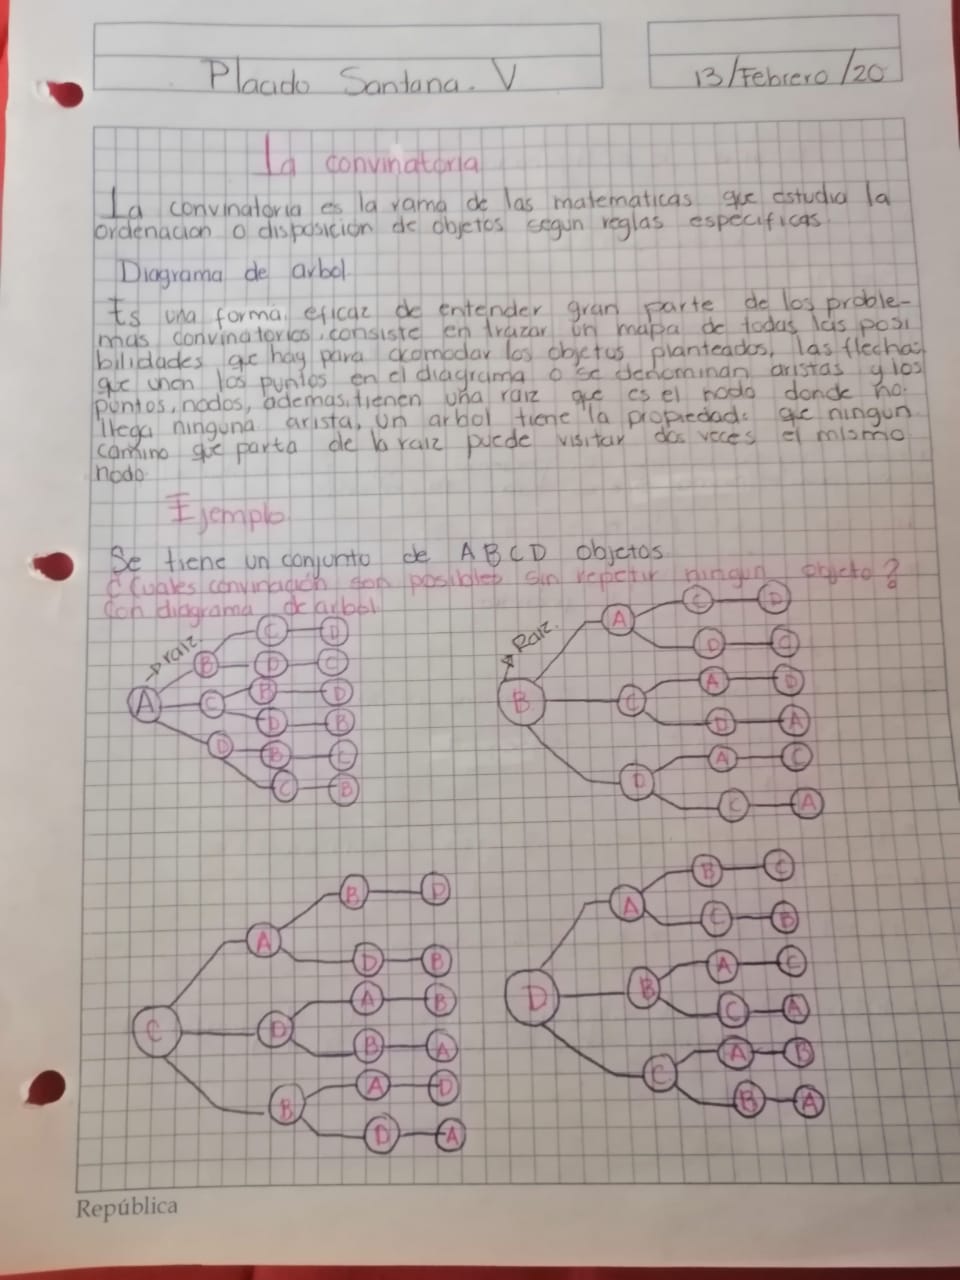 Placido Santana. V
13/Febrero/20
La convinatoria
La convinatoria es la rama de las matematicas que estudia la
ordenacion o disposicion de objetos segun reglas especificas
Diagrama de arbol
Es una forma eficaz de entender gran parte de los proble-
mas convinatorios, consiste en trazar un mapa de todas las posi
bilidades que hay para acomodar los objetos planteados, las flechas
que unen los puntos en el diagrama o se denominan aristas y los
puntos, nodos, ademas, tienen una raiz que es el nodo donde no
llega ninguna arista, un arbol tiene la propiedad: que ningun
camino que parta de la raiz puede visitar dos veces el mismo
nodo
Ejemplo
Se tiene un conjunto de ABCD objetos
¿Cuales convinación son posibles sin repetir ningun objeto?
Con diagrama de arbol
raiz
A B C D
B D C
C B D
D B
D B C
C B
Raiz
B A C D
D C
C A D
D A
D A C
C A
C A B D
D B
D A B
B A
B A D
D A
D A B C
C B
B A C
C A
C A B
B A
República